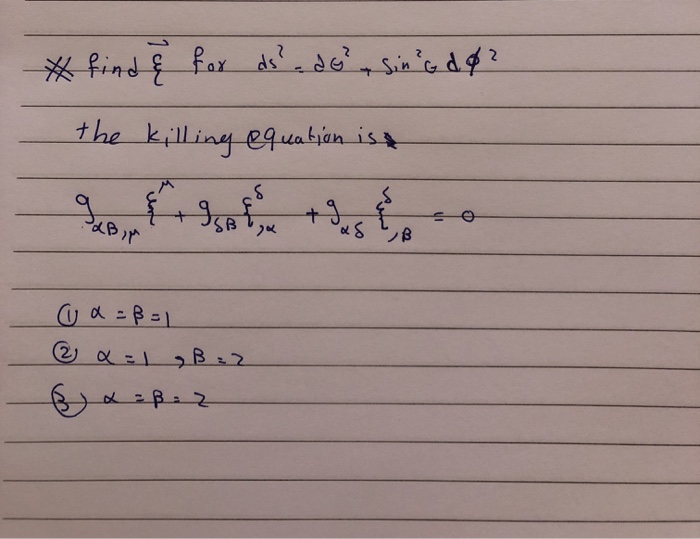 ※ find ξ⃗ for ds² = dθ² + Sin²θ dϕ²
the killing equation is
g_{αβ,μ} ξ^μ + g_{δβ} ξ^δ_{,α} + g_{αδ} ξ^δ_{,β} = 0
① α = β = 1
② α = 1 , β = 2
③ α = β = 2